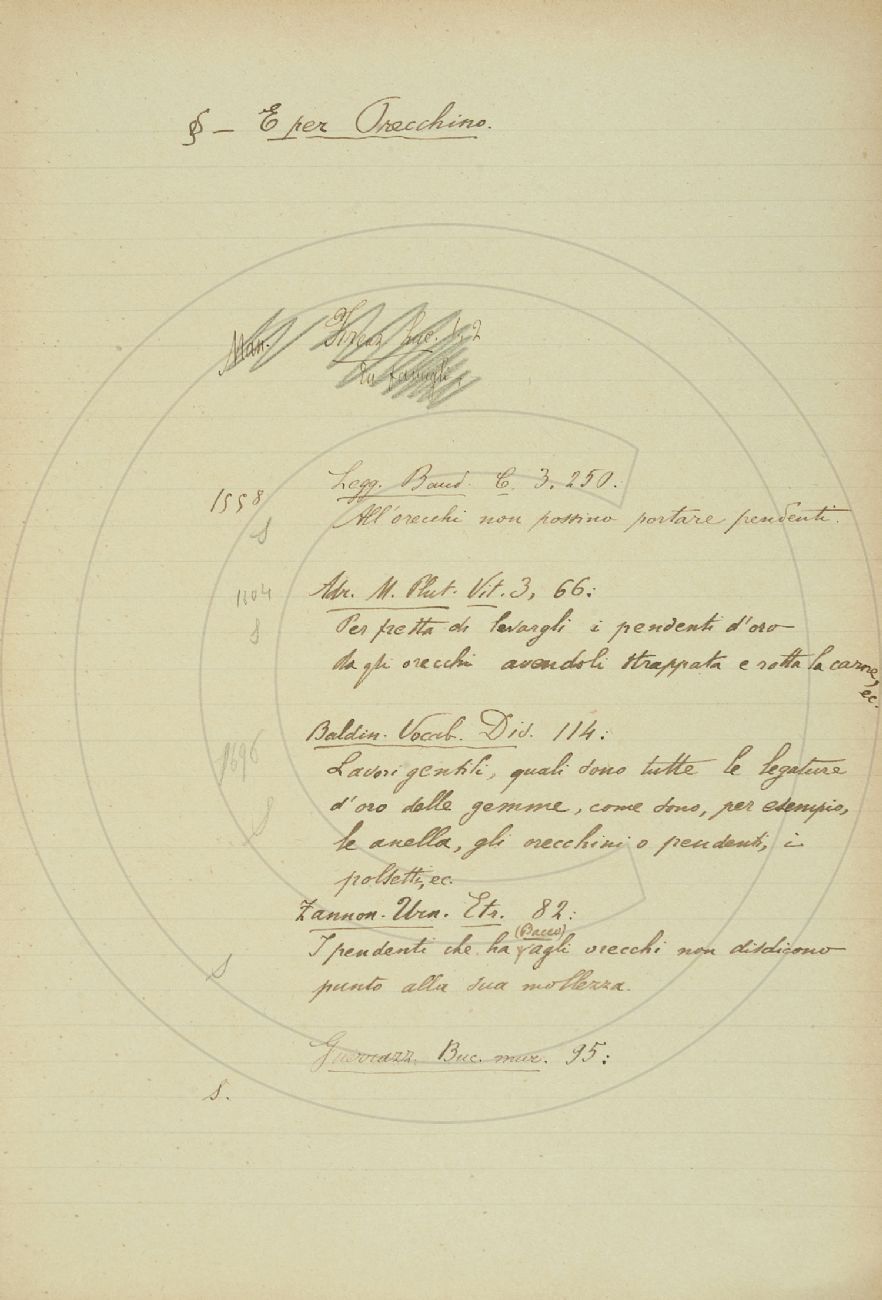 § — E per Orecchino.
Man.
1558
Legg. Band. C. 3. 250:
S
All'orecchi non possino portare pendenti.
Adr. M. Plut. Vit. 3, 66:
S
Per fretta di levargli i pendenti d'oro
da gli orecchi avendoli strappata e rotta la carne, ec.
Baldin. Vocab. Dis. 114:
1696
Lavori gentili, quali sono tutte le legature
d'oro delle gemme, come sono, per esempio,
S
le anella, gli orecchini o pendenti, i
polsetti, ec.
Zannon. Urn. Etr. 82:
S
I pendenti che ha (Bacco) agli orecchi non disdicono
punto alla sua mollezza.
Guerrazz. Buc. mur. 95:
S.